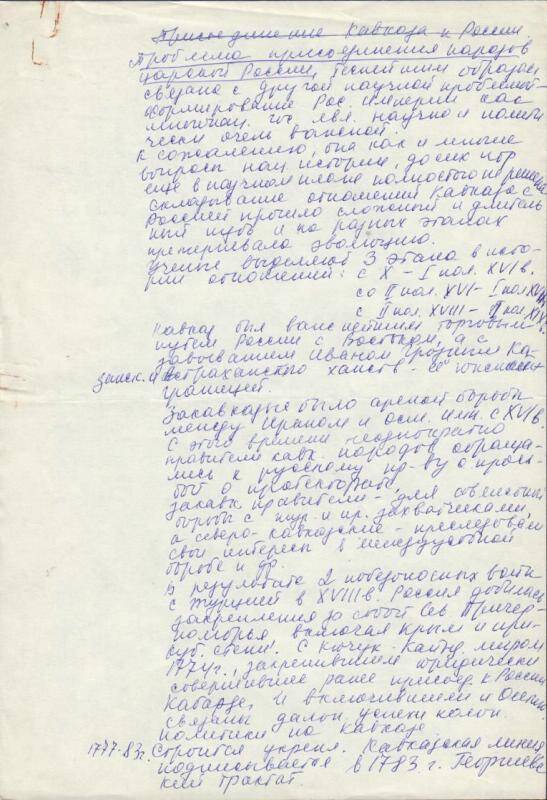 Присоединение Кавказа к России.
Проблема присоединения народов
царской Россией теснейшим образом
связана с другой научной проблемой-
формирование Рос. империи как
многонац. гос. явл. научно и полити
чески очень важной.
К сожалению, она как и многие
вопросы нац. истории, до сих пор
еще в научном плане полностью не решена
складывание отношений Кавказа с
Россией прошло сложный и длитель
ный путь и на разных этапах
претерпевало эволюцию.
Ученые выделяют 3 этапа в исто-
рии отношений: с X - I пол. XVI в.
со II пол. XVI - I пол. XVIII
с II пол. XVIII - II пол. XIX
Кавказ был важнейшим торговым
путем России с Востоком, а с
завоеванием Иваном Грозным Ка-
занск. и Астраханского ханств - её
границей.
Закавказье было ареной борьбы
между Ираном и осм. имп. с XVI в.
С этого времени неоднократно
правители кавк. народов обраща-
лись к русскому пр-ву с прось-
бой о протекторате,
закавк. правители - для совместной
борьбы с тур. и ир. захватчиками,
а северо-кавказские - преследовали
свои интересы в междоусобной
борьбе и др.
В результате 2 победоносных войн
с Турцией в XVIII в. Россия добилась
закрепления за собой Сев. Причер-
номорья, включая Крым и при-
куб. степи. С Кючук-Кайнд. миром
1774 г., закрепившем юридически
совершившее ранее присоед. к России
Кабарды, и включившей и Осетию
связаны далон. успехи колон.
политики на Кавказе.
1777-83г. строится укрепл. Кавказская линия
подписывается в 1783 г. Георгиевс
кий трактат.